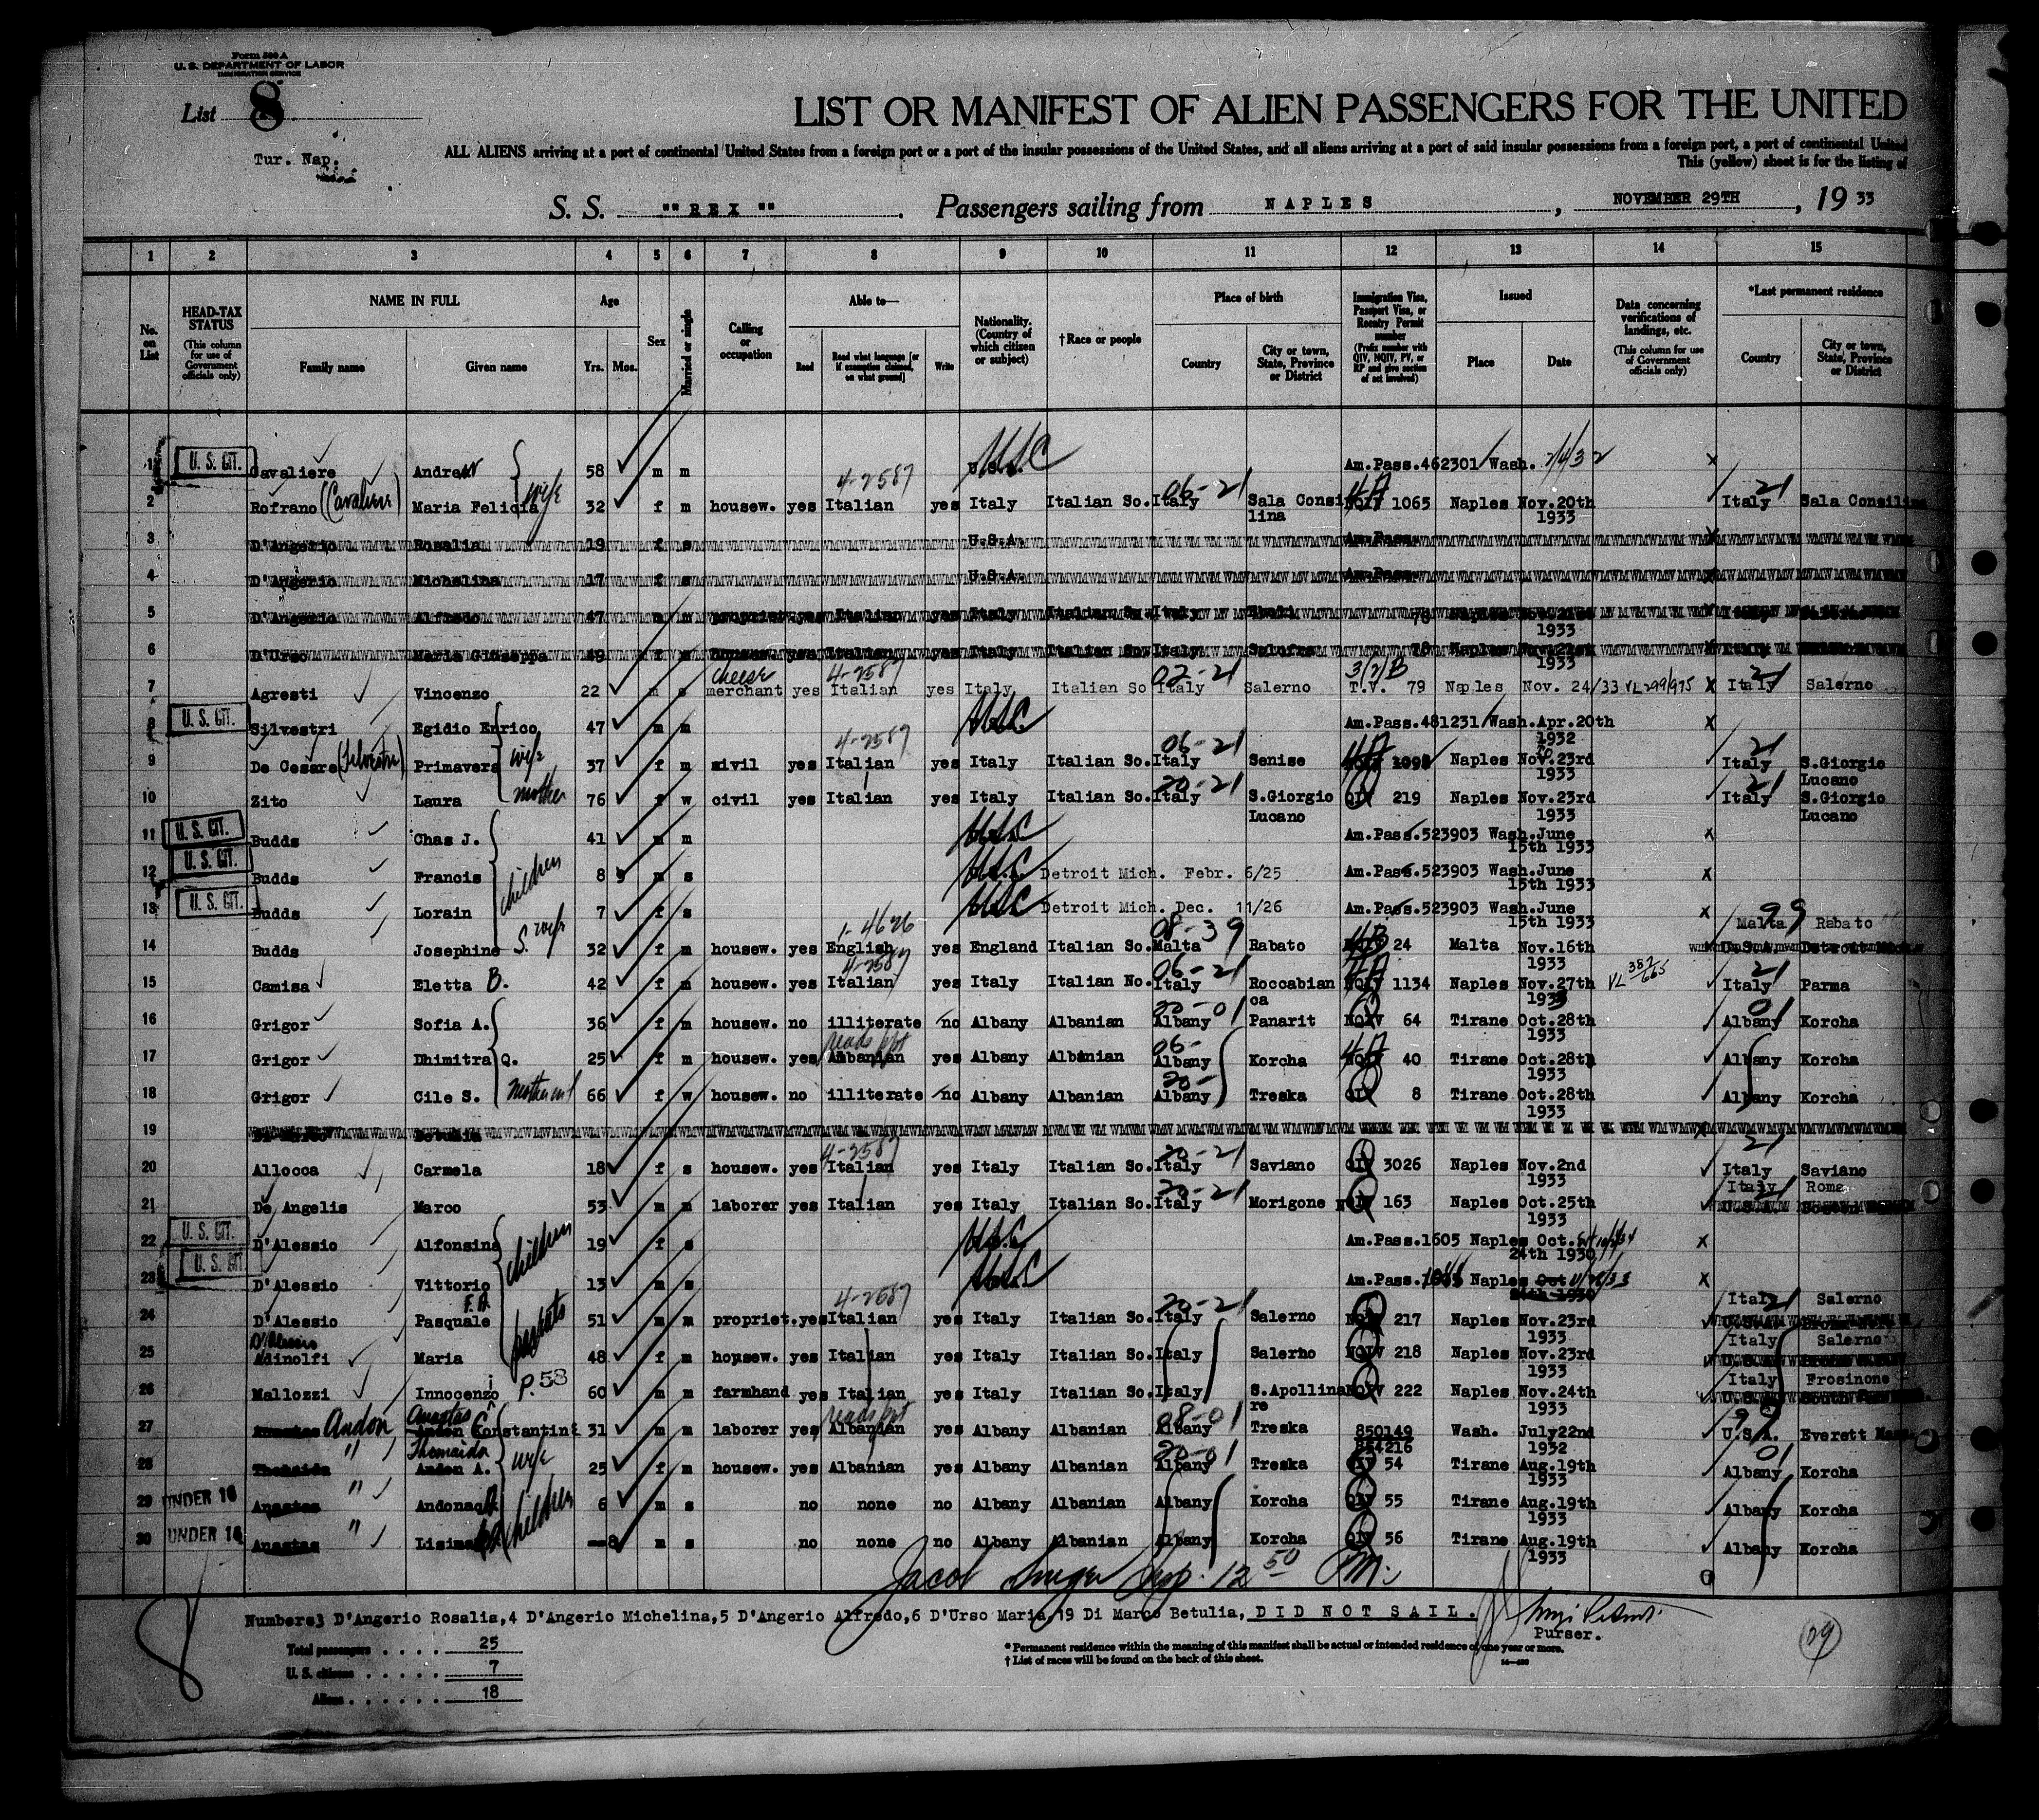 Form 500 A
U. S. DEPARTMENT OF LABOR
IMMIGRATION SERVICE
List 8
Tur. Nap.
LIST OR MANIFEST OF ALIEN PASSENGERS FOR THE UNITED
ALL ALIENS arriving at a port of continental United States from a foreign port or a port of the insular possessions of the United States, and all aliens arriving at a port of said insular possessions from a foreign port, a port of continental United
This (yellow) sheet is for the listing of
S. S. "" REX "" . Passengers sailing from NAPLES , NOVEMBER 29TH , 19 33
1 2 3 4 5 6 7 8 9 10 11 12 13 14 15
No. on List
HEAD-TAX STATUS (This column for use of Government officials only)
NAME IN FULL Family name Given name
Age Yrs. Mos.
Sex
Married or single
Calling or occupation
Able to— Read Read what language [or if exemption claimed, on what ground] Write
Nationality. (Country of which citizen or subject)
†Race or people
Place of birth Country City or town, State, Province or District
Immigration Visa, Passport Visa, or Reentry Permit number (Prefix number with QIV, NQIV, PV, or RP and give section of act involved)
Issued Place Date
Data concerning verifications of landings, etc. (This column for use of Government officials only)
*Last permanent residence Country City or town, State, Province or District
1 U. S. CIT. Cavaliere Andrew 58 m m USC Am.Pass.462301 Wash. x
2 Rofrano (Cavaliere) Maria Felicia wife 32 f m housew. yes Italian 4-2587 yes Italy Italian So. Italy 06-21 Sala Consilina NQIV 1065 Naples Nov.20th 1933 Italy 21 Sala Consilina
3 D'Angerio Rosalia 19 f s U.S.A. Am.Pass.
4 D'Angerio Michelina 17 f s U.S.A. Am.Pass.
5 D'Angerio Alfredo 47 m m propriet. yes Italian yes Italy Italian So. Italy 1933
6 D'Urso Maria Giuseppa 49 f m housew. yes Italian yes Italy Italian So. Italy Solofra Naples 1933
7 Agresti Vincenzo 22 m s cheese merchant yes Italian 4-2587 yes Italy Italian So Italy 02-21 Salerno 3(2)B T.V. 79 Naples Nov. 24/33 VL 299/975 x Italy 21 Salerno
8 U. S. CIT. Silvestri Egidio Enrico 47 m m USC Am.Pass.481231 Wash.Apr.20th 1932 x
9 De Cesare (Silvestri) Primavera wife 37 f m civil yes Italian 4-2587 yes Italy Italian So. Italy 06-21 Senise 4A Naples Nov.23rd 1933 Italy 21 S.Giorgio Lucano
10 Zito Laura mother 76 f w civil yes Italian yes Italy Italian So. Italy 20-21 S.Giorgio Lucano QIV 219 Naples Nov.23rd 1933 Italy 21 S.Giorgio Lucano
11 U. S. CIT. Budds Chas J. 41 m m USC Am.Pass.523903 Wash.June 15th 1933 x
12 U. S. CIT. Budds Francis children 8 m s USC Detroit Mich. Febr. 6/25 Am.Pass.523903 Wash.June 15th 1933 x
13 U. S. CIT. Budds Lorain 7 f s USC Detroit Mich. Dec. 11/26 Am.Pass.523903 Wash.June 15th 1933 x
14 Budds Josephine S. wife 32 f m housew. yes English 1-4626 yes England Italian So. Malta 08-39 Rabato 24 Malta Nov.16th 1933 Malta 99 Rabato
15 Camisa Eletta B. 42 f m housew. yes Italian 4-2587 yes Italy Italian No. Italy 06-21 Roccabianca 4A NQIV 1134 Naples Nov.27th 1933 VL 382/665 Italy 21 Parma
16 Grigor Sofia A. 36 f m housew. no illiterate no Albany Albanian Albany 20-01 Panarit NQIV 64 Tirane Oct.28th 1933 Albany 01 Korcha
17 Grigor Dhimitra Q. 25 f m housew. yes Albanian yes Albany Albanian Albany 06- Korcha 4A NQIV 40 Tirane Oct.28th 1933 Albany Korcha
18 Grigor Cile S. 66 f w housew. no illiterate no Albany Albanian Albany 20- Treska QIV 8 Tirane Oct.28th 1933 Albany Korcha
19 Di Marco Betulia
20 Allocca Carmela 18 f s housew. yes Italian 4-2587 yes Italy Italian So. Italy 20-21 Saviano QIV 3026 Naples Nov.2nd 1933 Italy 21 Saviano
21 De Angelis Marco 53 m m laborer yes Italian yes Italy Italian So. Italy 20-21 Morigone 163 Naples Oct.25th 1933 Italy 21 Roma
22 U. S. CIT. D'Alessio Alfonsina children 19 f s USC Am.Pass.1605 Naples Oct. 24th 1930 x
23 U. S. CIT. D'Alessio Vittorio 13 m s USC Am.Pass. Naples Oct 24th 1930 x
24 D'Alessio Pasquale 51 m m propriet. yes Italian yes Italy Italian So. Italy 20-21 Salerno 217 Naples Nov.23rd 1933 Italy 21 Salerno
25 D'Alessio Adinolfi Maria 48 f m housew. yes Italian yes Italy Italian So. Italy Salerno NQIV 218 Naples Nov.23rd 1933 Italy Salerno
26 Mallozzi Innocenzo P.58 60 m m farmhand yes Italian yes Italy Italian So. Italy S.Apollinare 222 Naples Nov.24th 1933 Italy Frosinone
27 Andon Anastas Constantine 31 m m laborer yes Albanian yes Albany Albanian Albany 08-01 Treska 850149 Wash. July22nd 1932 U.S.A. 99 Everett Mass.
28 " Themaida Andon A. wife 25 f m housew. yes Albanian yes Albany Albanian Albany 20-01 Treska QIV 54 Tirane Aug.19th 1933 Albany 01 Korcha
29 UNDER 16 Anastas " Andonaq children 6 m s no none no Albany Albanian Albany Korcha QIV 55 Tirane Aug.19th 1933 Albany Korcha
30 UNDER 16 Anastas " —8 m s no none no Albany Albanian Albany Korcha QIV 56 Tirane Aug.19th 1933 Albany Korcha
Numbers3 D'Angerio Rosalia,4 D'Angerio Michelina,5 D'Angerio Alfredo,6 D'Urso Maria,19 Di Marco Betulia, DID NOT SAIL.
Purser.
Total passengers . . . . 25
U. S. citizens . . . . . 7
Aliens . . . . . . 18
* Permanent residence within the meaning of this manifest shall be actual or intended residence of one year or more.
† List of races will be found on the back of this sheet.